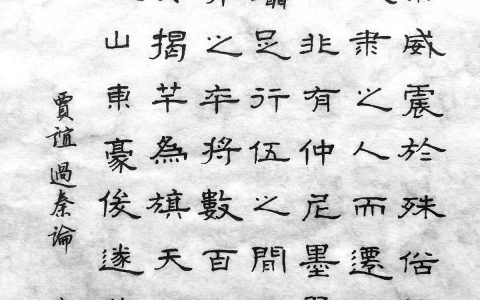 威震於殊俗
隸之人而遷
非有仲尼墨
足行伍之間
之卒將數百
揭竿為旗天
山東豪俊遂
賈誼過秦論